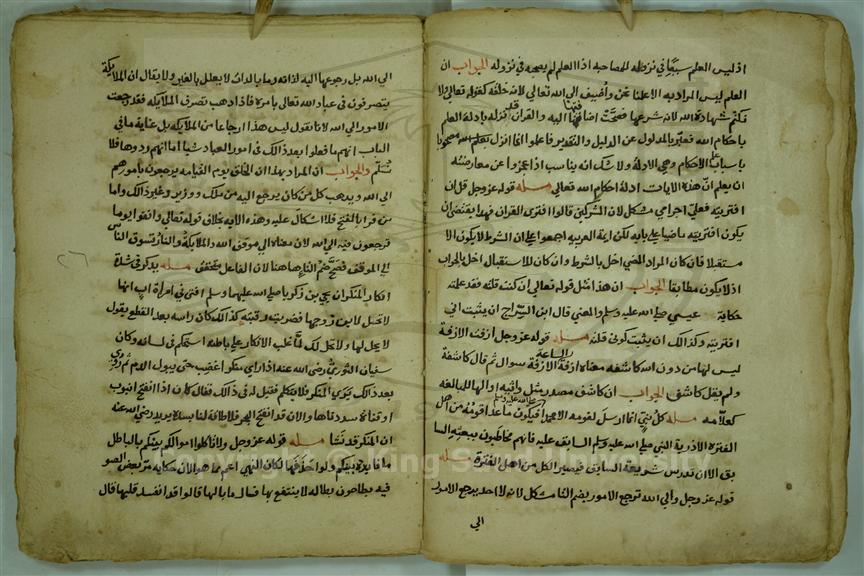 اذ ليس العلم سببا في نزوله للمصاحبه اذا العلم لم يصحبه في نزوله الجواب ان
العلم ليس المراد به الا علنا نحن واضيف الى الله تعالى لانه خلقه كقوله تعالى ولا
نكتم شهادة الله لانه شرعها فصحت اضافتها اليه والقران قد نزله بادلة العلم
باحكام الله فعبر بالمدلول عن الدليل والتقدير فاعلموا انما انزل بعلم الله مصحوبا
باسباب على الاحكام وهي الادلة ولا شك انه يناسب اذا عجزوا عن معارضته
ان يعلم ان هذه الايات ادلة احكام الله تعالى مسله قوله عز وجل قل ان
افتريته فعلي اجرامي مشكل لان المشركين قالوا افترى القران فهذا يقتضي ان
يكون افتريته ماضيا على بابه لكن ايمة العربيه اجمعوا على ان الشرط لا يكون الا
مستقبلا فان كان المراد المضي اخل بالشرط وان كان للاستقبال اخل بالجواب
اذ لا يكون مطابقا الجواب ان هذا مثل قوله تعالى ان كنت قلته فقد علمته
حكاية عيسى صلى الله عليه وسلم والمعنى قال ابن السراج ان يثبت اني
افتريته وكذالك ان يثبت كوني قلته مسله قوله عز وجل ازفت الازفة
ليس لها من دون الله كاشفه معناه ازفة الساعة الازفة سوال ثم قال كاشفة
ولم يقل كاشف الجواب ان كاشف مصدر واتيه او الها للمبالغه
كعلامه مسله كل نبي انما ارسل لقومه الا محمد صلى الله عليه وسلم فيكون ما عدا قومه من اهل
الفترة الا ذرية النبي صلى الله عليه وسلم السابق عليه فانهم مخاطبون ببعثه السا
بق الا ان تدرس شريعة السابق فيصير الكل من اهل الفترة مسله
قوله عز وجل والى الله ترجع الامور بضم التا مشكل لانه لا احد يرجع الامور
الى
الى الله بل رجوعها اليه لذاته وما بالذات لا يعلل بالغير ولا يقال ان الملايكة
يتصرفون في عباد الله تعالى بامره فاذا ذهب تصرف الملايكه فقد رجعت
الامور الى الله لانا نقول ليس هذا ارجاعا من الملايكه بل غاية ما في
الباب انهم ما فعلوا بعد ذالك في امور العباد شيا اما انهم ردوها فلا
نسلم والجواب ان المراد بهذا ان الخلق يوم القيامه يرجعون بامورهم
الى الله ويذهب كل من كان يرجع اليه من ملك ووزير وغير ذالك واما
من قرا بالفتح فلا اشكال عليه وهذه الايه بخلاف قوله تعالى واتقوا يوما
ترجعون فيه الى الله لان معناه الى موقف الله والملايكة والنار تسوق الناس
الى الموقف فصح ضم التا هاهنا لان الفاعل متحقق مسله يذكر في شدة
افكار المنكر ان يحيى بن زكريا صلى الله عليهما وسلم افتى في امراة اب انها
لا تحل لابن زوجها فضربت رقبته كذالك كان راسه بعد القطع يقول
لا يحل لها ولا يحل لك لما غلب الانكار على باطنه استحكم في لسانه وكان
سفيان الثوري رضي الله عنه اذا راى منكرا غضب حتى يبول الدم ثم روي
بعد ذالك يرى المنكر فلا يتكلم فقيل له في ذالك فقال كان اذا انفتح انبوب
او قناة سددناها والان قد انفتح البحر فلا طاقة لنا بسده يريد رضي الله عنه
ان المنكر قد فشا مسله قوله عز وجل ولا تاكلوا اموالكم بينكم بالباطل
ما فايدة بينكم ولو حذفها لكان النهي اعم مما هو الان حكايه مر بعض الصو
فيه ببطاحون بطاله لا ينتفع بها فسال ما بالها قالوا قد انفسد قلبها قال